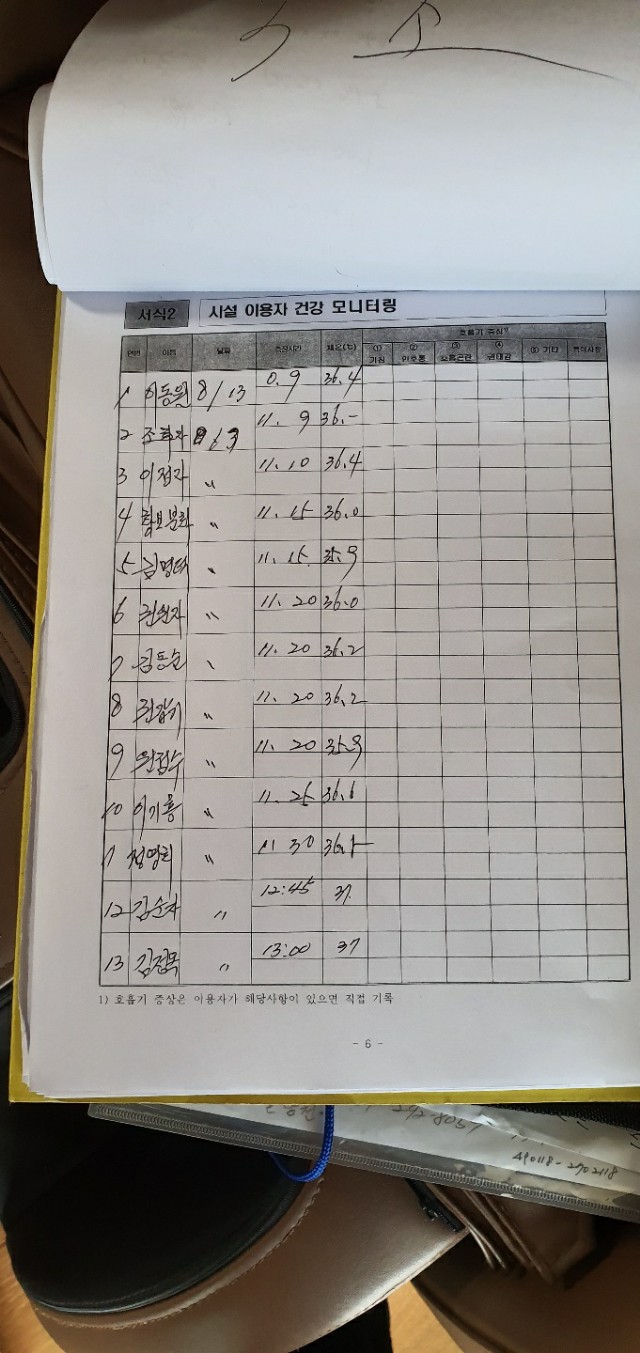 소
서식2 시설 이용자 건강 모니터링
호흡기 증상1)
연번 이름 날짜 측정시간 체온(℃) ① 기침 ② 인후통 ③ 호흡곤란 ④ 권태감 ⑤ 기타 특이사항
1 이동원 8/13 0.9 36.4
2 11. 9 36.-
3 이점자 〃 11. 10 36.4
4 〃 11. 15 36.0
5 〃 11. 15. 35.9
6 〃 11. 20 36.0
7 김동순 〃 11. 20 36.2
8 〃 11. 20 36.2
9 〃 11. 20 35.9
10 이기홍 〃 11. 25 36.6
11 정영희 〃 11 30
12 김순자 〃 12:45 37
13 김정옥 〃 13:00 37
1) 호흡기 증상은 이용자가 해당사항이 있으면 직접 기록
- 6 -